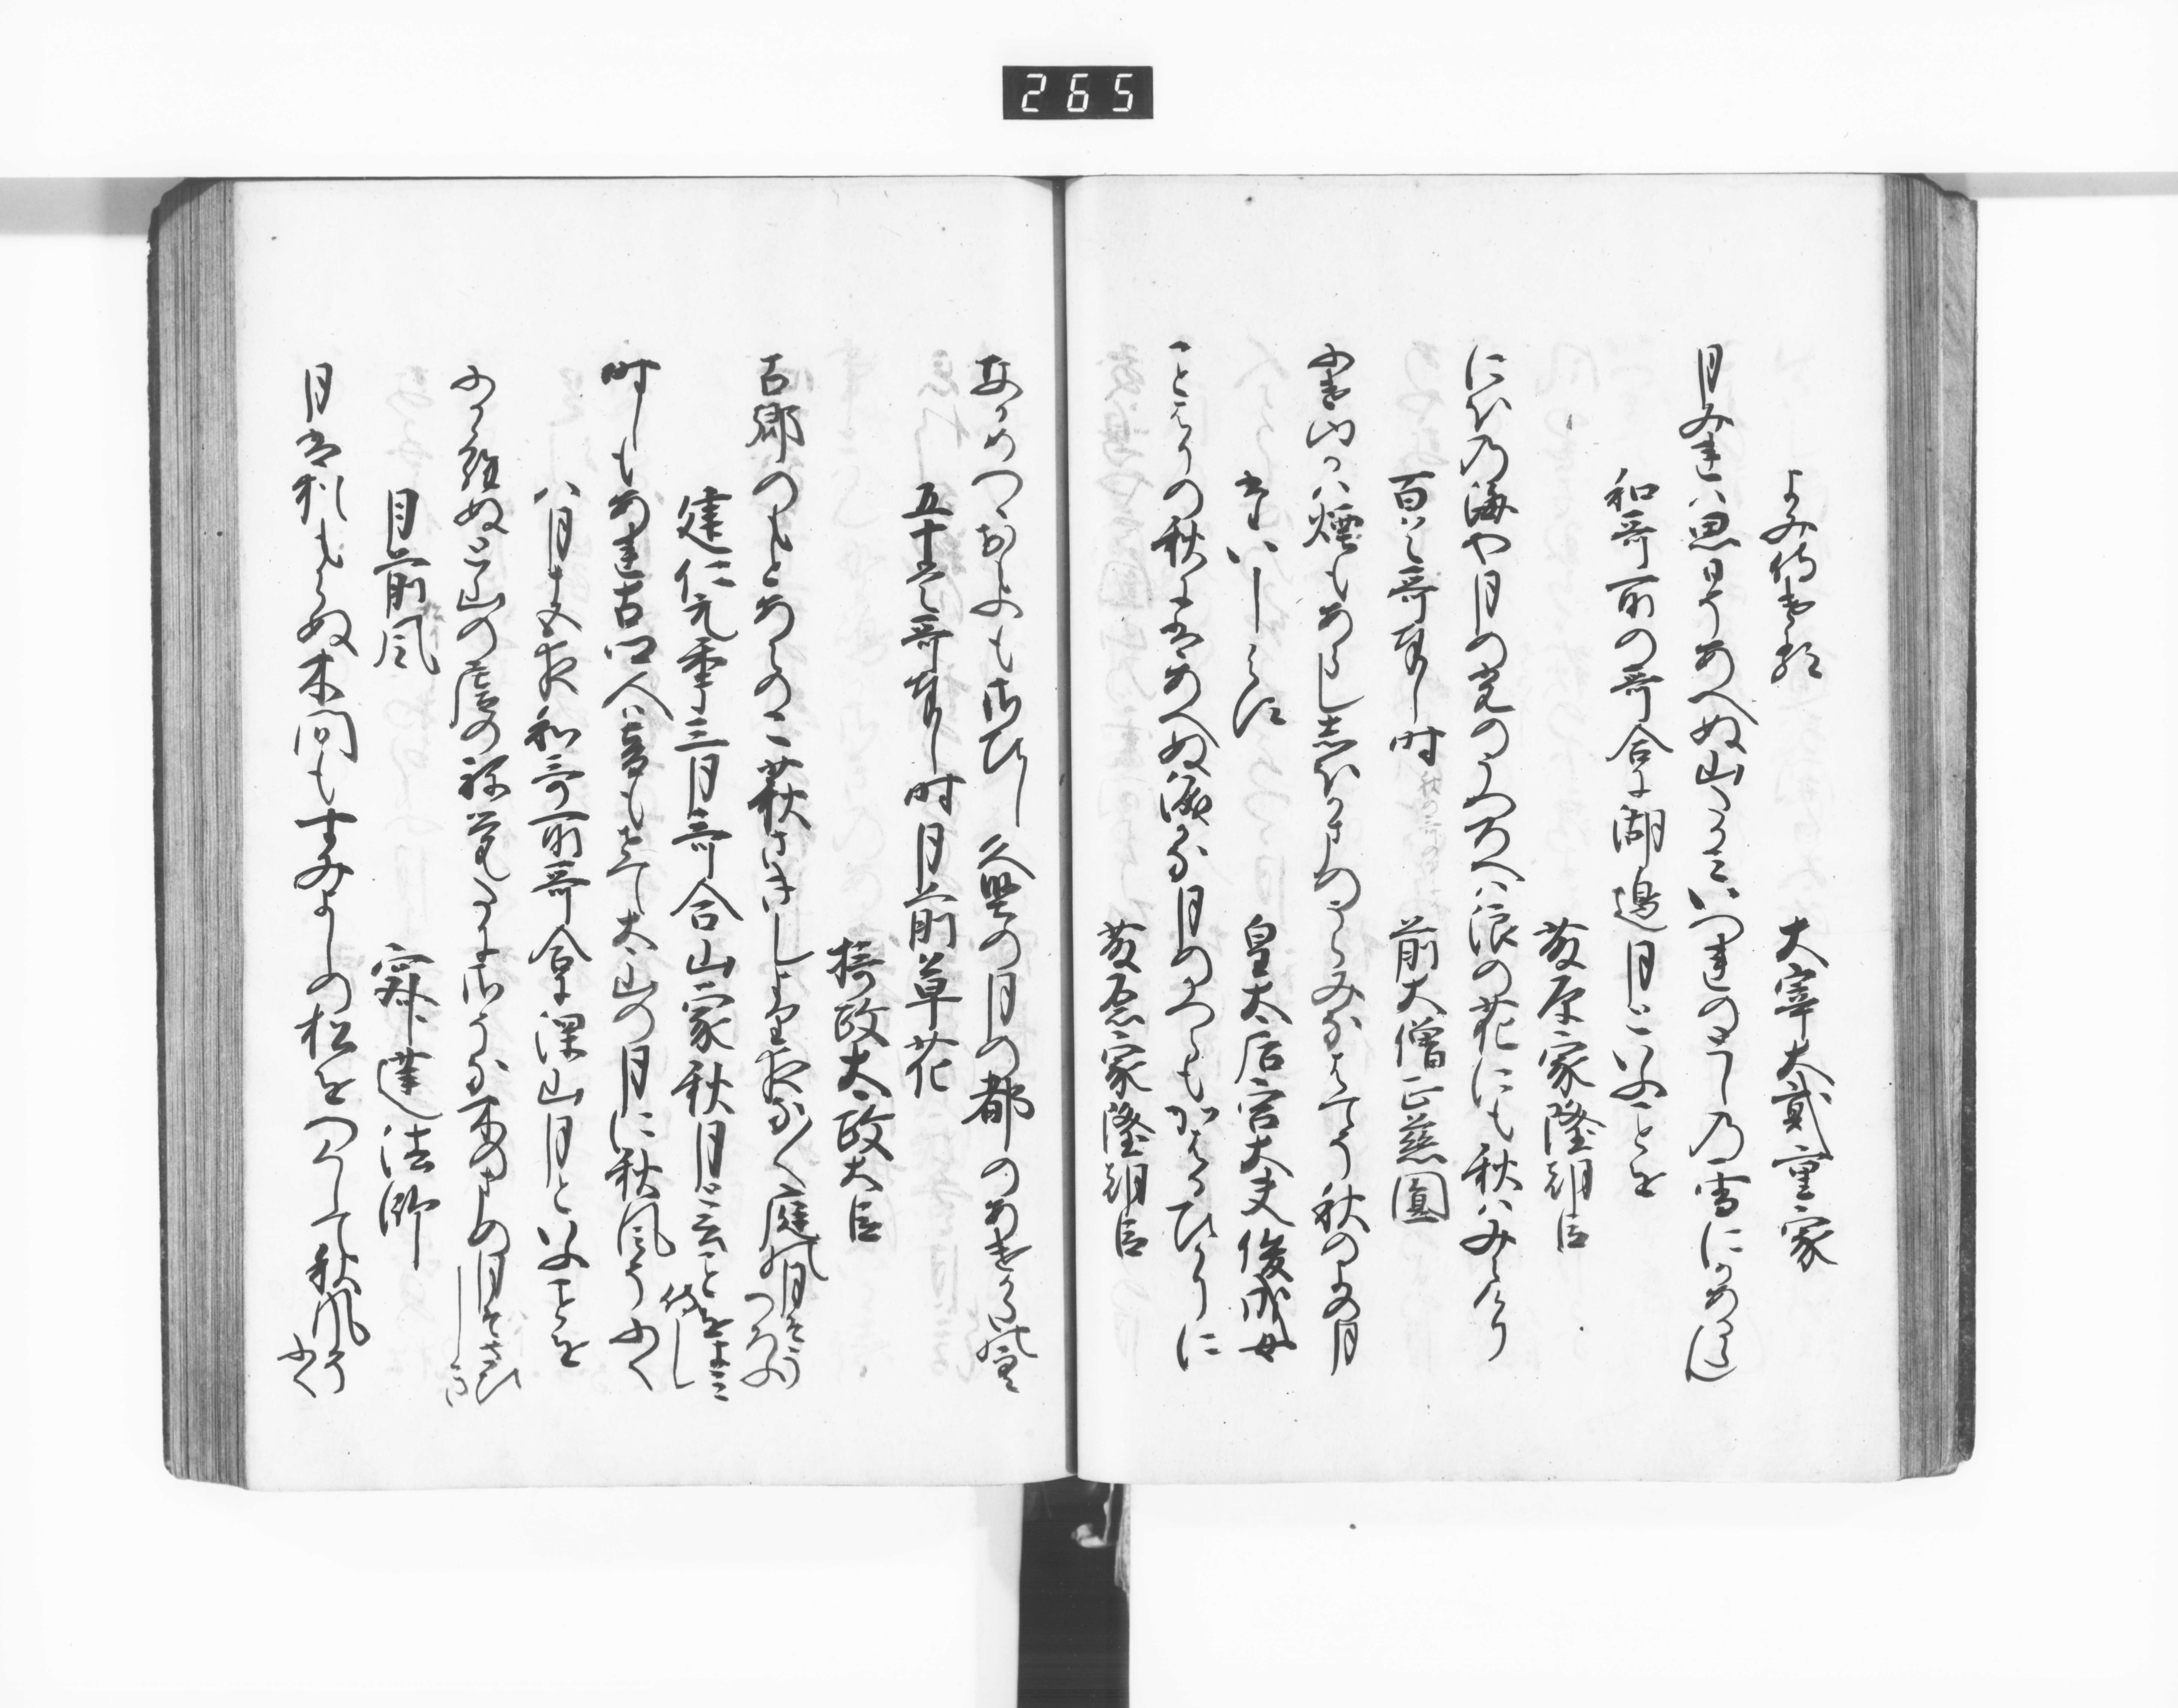 265
よみ侍ける
大宰大貳重家
月みれは思ひそあへぬ山たかみいつれのとしの雪にかあるらん
和哥所の哥合に湖邊月といふことを
藤原家隆朝臣
にほの海や月の光のうつろへは浪の花にも秋はみえけり
百首哥奉りし時
前大僧正慈圓
ふけゆかは煙もあらししほかまのうらみなはてそ秋のよの月
題しらす
皇太后宮大夫俊成女
ことはりの秋にはあへぬ涙かな月のかつらもかはるひかりに
藤原家隆朝臣
なかめつゝおもふもさひし久堅の月の都のあけかたの空
五十首哥奉りし時月前草花
攝政太政大臣
古郷のもとあらのこ萩さきしより夜な〱庭の月そうつろふ
建仁元年三月哥合山家秋月と云ことをよみ侍し
時しもあれ古郷人は音もせてみ山の月に秋風そふく
八月十五夜和哥所哥合に深山月といふことを
ふかゝらぬと山の庵のねさめたにさそな木のまの月はさひしき
月前風
寂蓮法師
月はなをもらぬ木間もすみよしの松をつくして秋風そふく